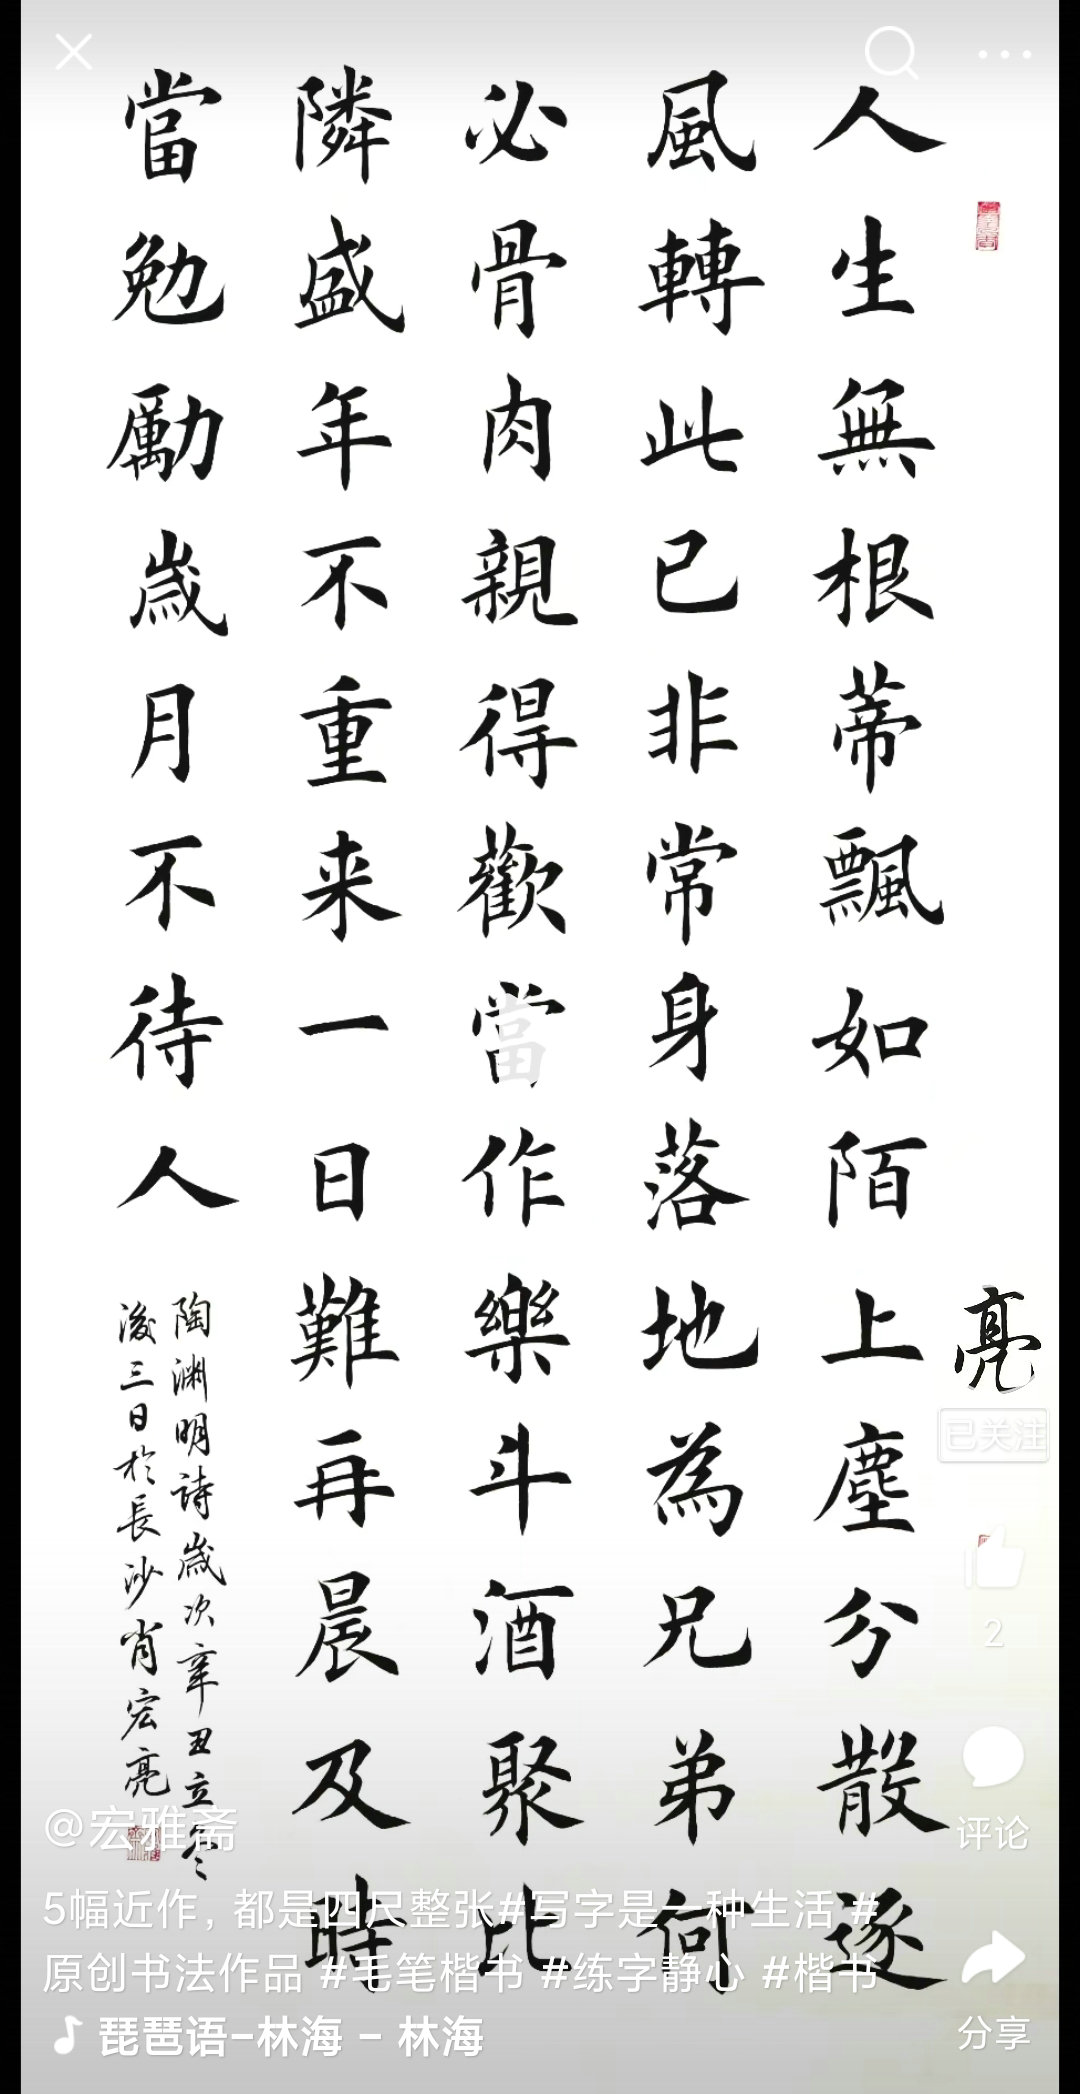 人生無根蒂飄如陌上塵分散逐
風轉此已非常身落地為兄弟何
必骨肉親得歡當作樂斗酒聚比
隣盛年不重来一日難再晨及時
當勉勵歲月不待人
陶渊明詩歲次辛丑立冬
後三日於長沙肖宏亮
亮
已关注
2
评论
分享
@宏雅斋
5幅近作，都是四尺整张#写字是一种生活 #
原创书法作品 #毛笔楷书 #练字静心 #楷书
琵琶语-林海 - 林海